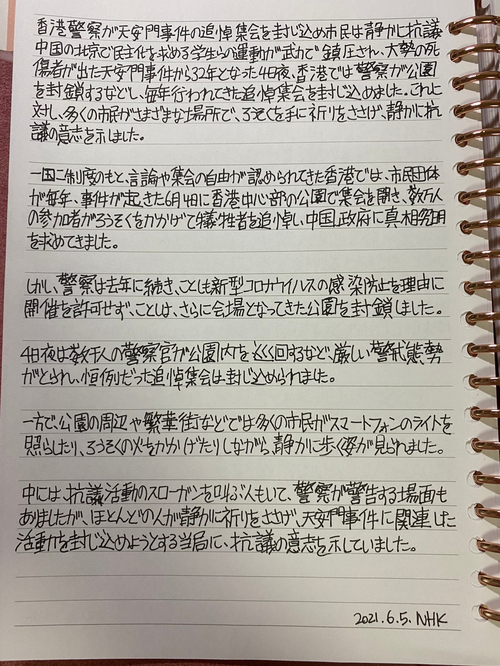 香港警察が天安門事件の追悼集会を封じ込め市民は静かに抗議
中国の北京で民主化を求める学生らの運動が武力で鎮圧され、大勢の死
傷者が出た天安門事件から32年となった4日夜、香港では警察が公園
を封鎖するなどし、毎年行われてきた追悼集会を封じ込めました。これに
対し、多くの市民がさまざまな場所で、ろうそくを手に祈りをささげ、静かに抗
議の意志を示しました。
一国二制度のもと、言論や集会の自由が認められてきた香港では、市民団体
が毎年、事件が起きた6月4日に香港中心部の公園で集会を開き、数万人
の参加者がろうそくをかかげて犠牲者を追悼し、中国政府に真相究明
を求めてきました。
しかし、警察は去年に続き、ことしも新型コロナウイルスの感染防止を理由に
開催を許可せず、ことしは、さらに会場となってきた公園を封鎖しました。
4日夜は数千人の警察官が公園内を巡回するなど、厳しい警戒態勢
がとられ、恒例だった追悼集会は封じ込められました。
一方で、公園の周辺や繁華街などでは多くの市民がスマートフォンのライトを
照らしたり、ろうそくの火をかかげたりしながら、静かに歩く姿が見られました。
中には、抗議活動のスローガンを叫ぶ人もいて、警察が警告する場面も
ありましたが、ほとんどの人が静かに祈りをささげ、天安門事件に関連した
活動を封じ込めようとする当局に、抗議の意志を示していました。
2021.6.5. NHK